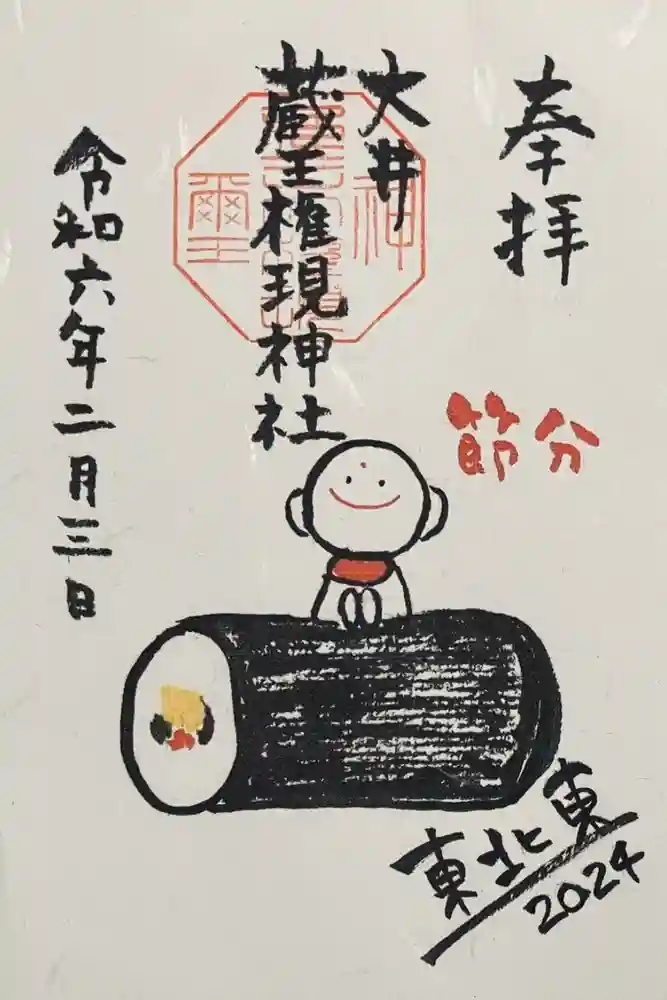 奉拝
大井
蔵王権現神社
令和六年二月三日
節分
東北東
2024